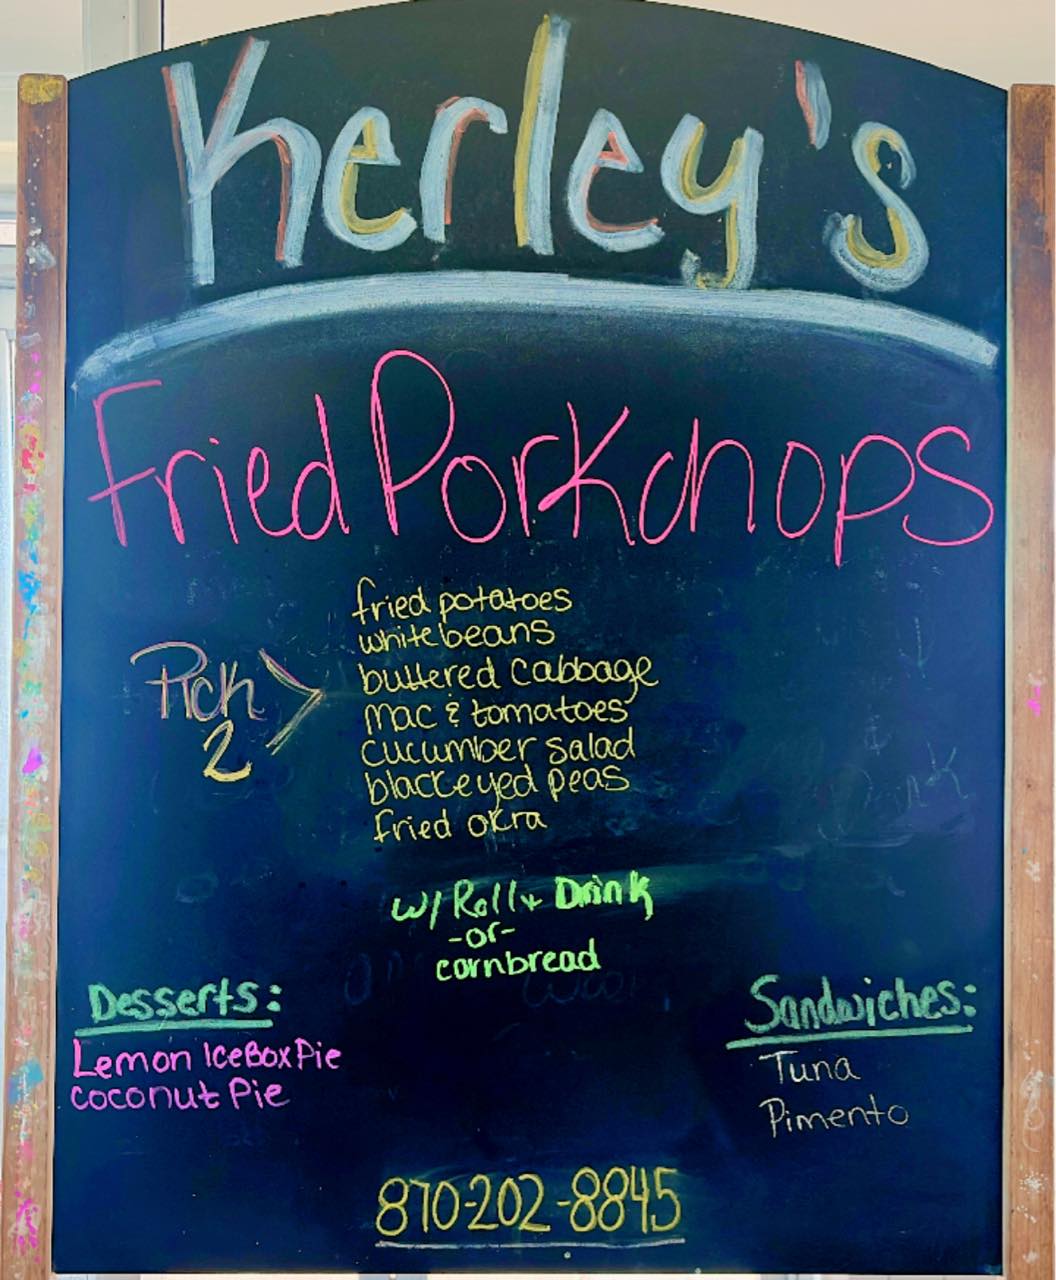 Kerley's
Fried Porkchops
Pick
2
fried potatoes
white beans
buttered cabbage
mac & tomatoes
cucumber salad
blackeyed peas
fried okra
w/ Roll + Drink
-or-
cornbread
Desserts:
Lemon IceBox Pie
coconut Pie
Sandwiches:
Tuna
Pimento
870-202-8845